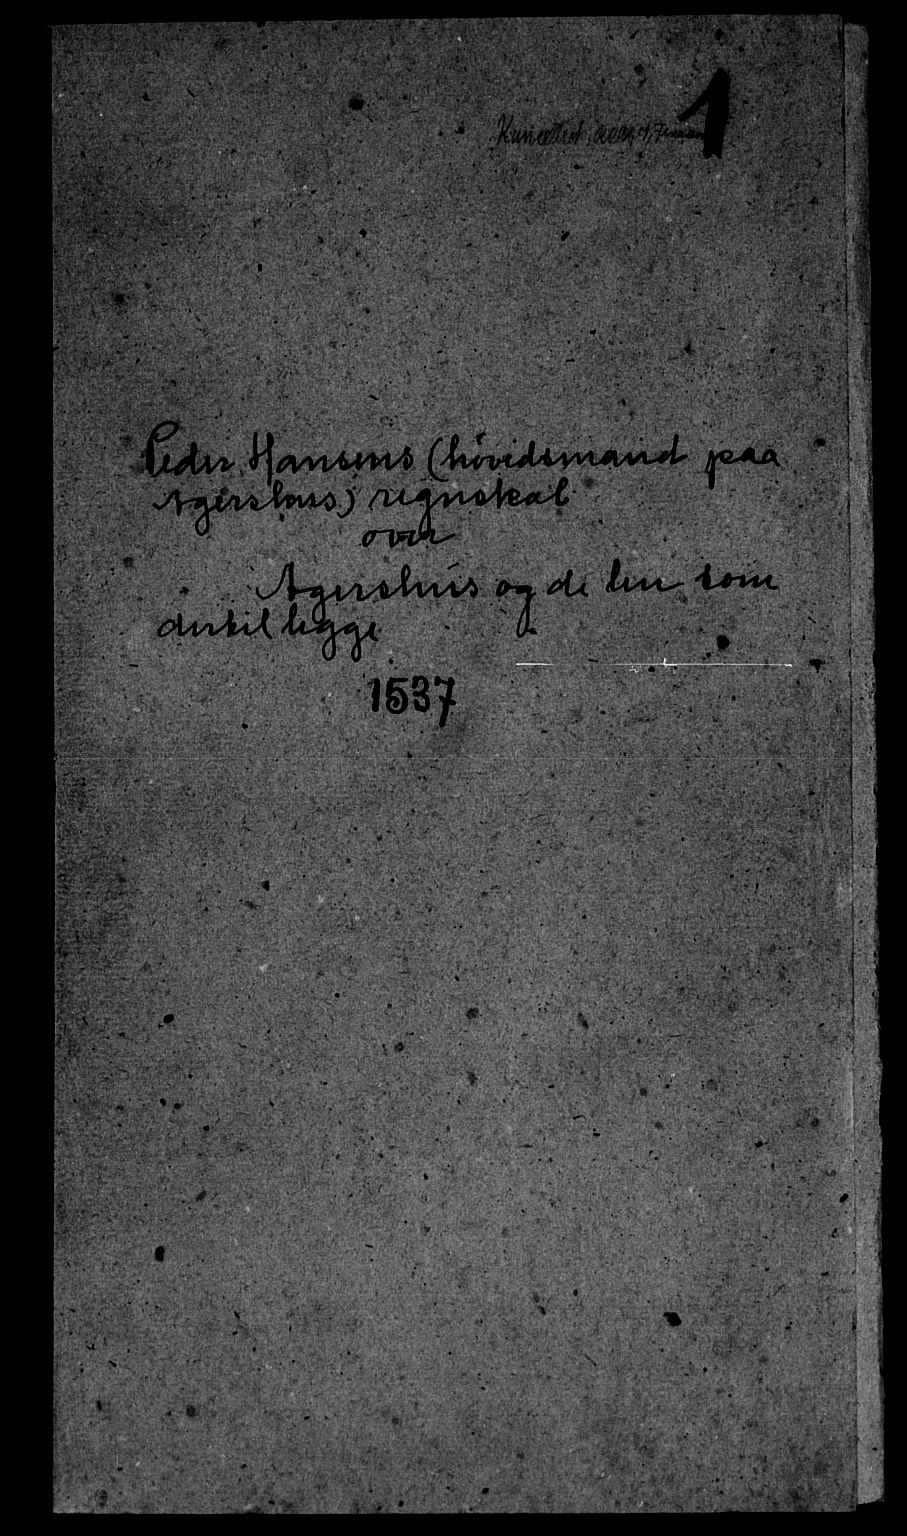 1
Peder Hansens (hövidsmand paa
Agershus) regnskab
over
Agershus og de len som
dertil ligge
1537